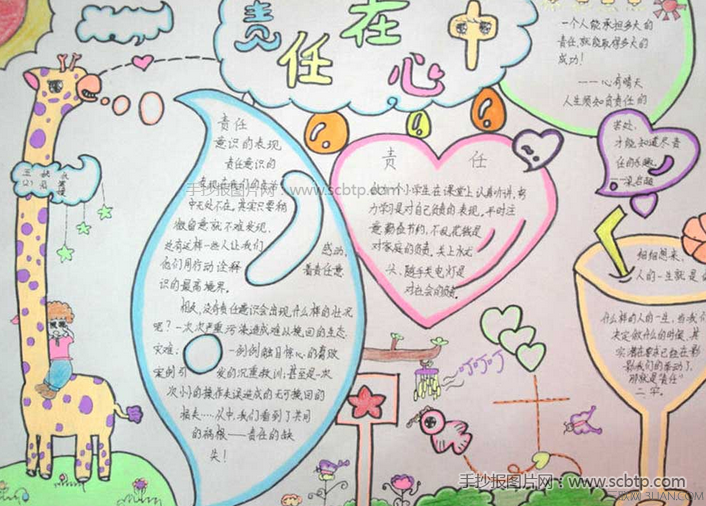 责任在心中
一个人能承担多大的
责任,就能取得多大的
成功!
——心有晴天
人生须知负责任的
苦处,
才能知道尽责
任的乐趣。
——梁启超
责任
意识的表现
责任意识的
表现在我们的生活
中无处不在。其实只要稍
微留意就不难发现,
总有这样一些人让我们
感动,
他们用行动诠释
着责任意
识的最高境界。
相反,没有责任意识会出现什么样的状况
呢?一次次严重污染造成难以挽回的生态
灾难;
一例例触目惊心的腐败
案例引
发的沉重教训;甚至是一次
次小的操作失误造成的无可挽回的
损失……从中,我们看到了共同
的祸根——责任的缺
失!
责 任
做为一个小学生在课堂上认真听讲,努
力学习是对自己负责的表现。平时注
意勤俭节约,不乱花钱是
对家庭的负责。关上水龙
头、随手关电灯是
对社会的负责。
细细想来,
人的一生就是
什么样的人的一生,当我们
决定做什么的时候,其
实潜在意识已经在影
影我们的行动了,
那就是“责任”
二字。
叮叮叮
手抄报图片网:www.scbtp.com
手抄报图片网:www.scbtp.com